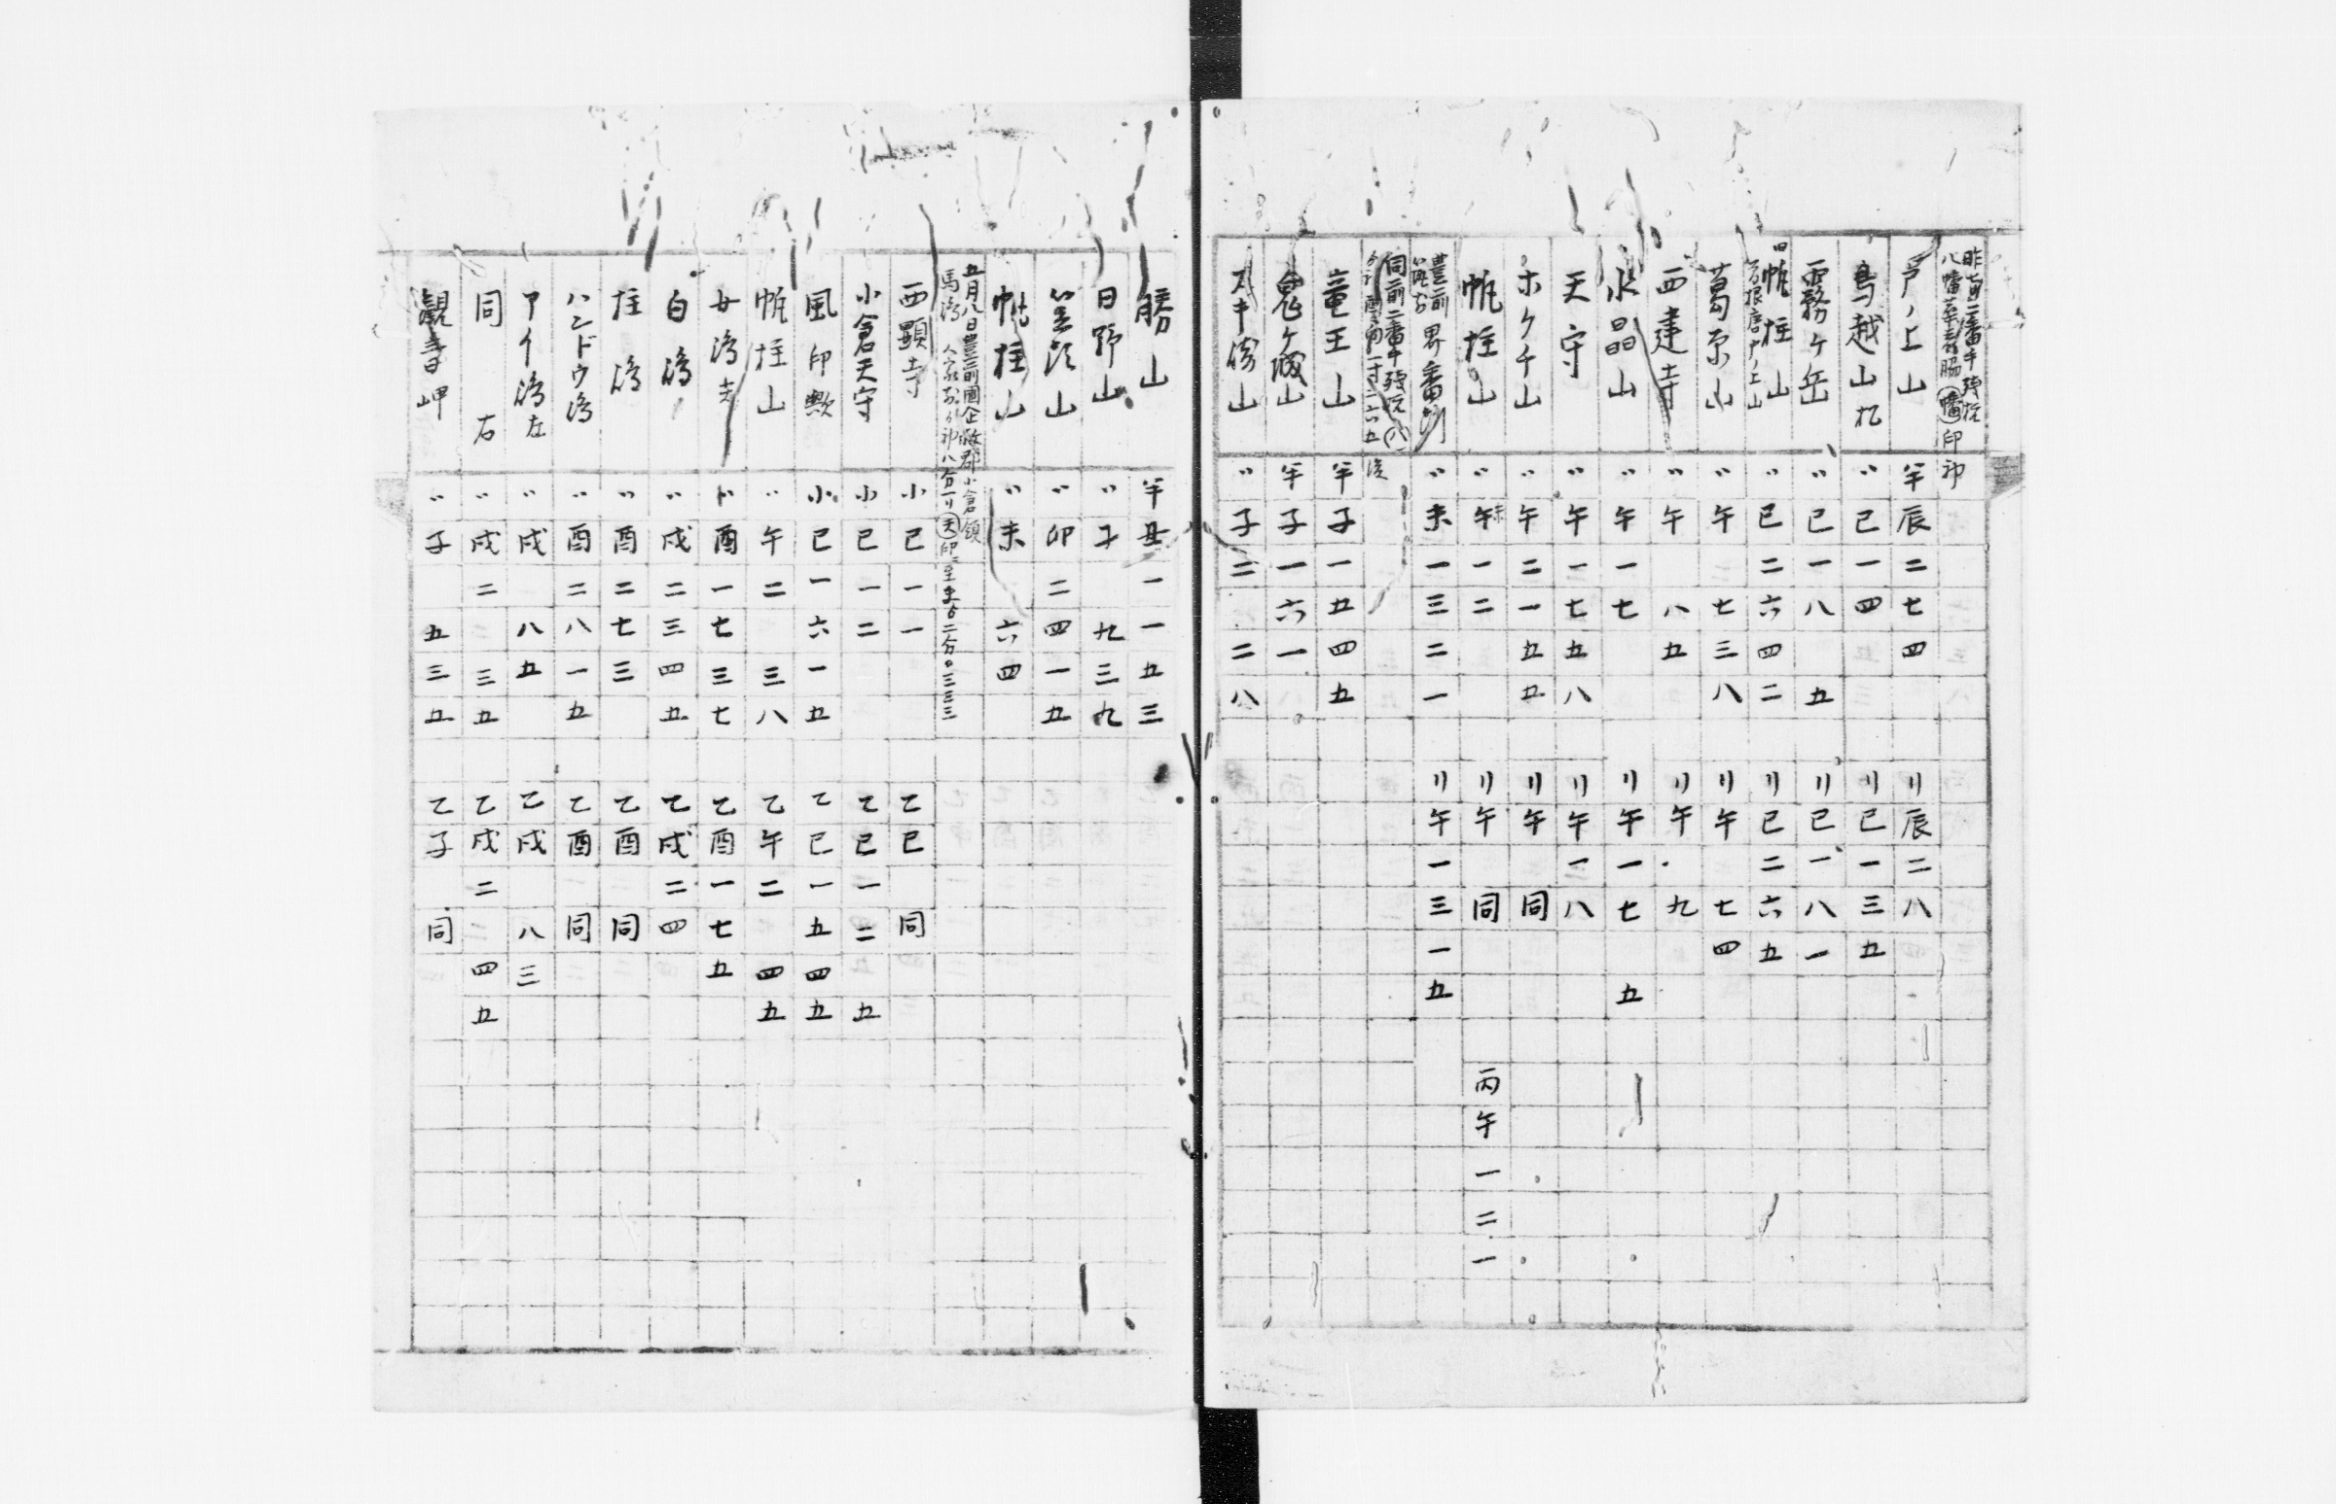 戸ノ上山 半辰二七四 リ辰二八
鳥越山 〃巳一四 リ巳一三五
霧ケ岳 〃巳一八 五 リ巳一八一
帆柱山 〃巳二六四二 リ巳二六五
葛原山 〃午 七三八 リ午 七四
西建寺 〃午 八五 リ午 九
水晶山 〃午一七 リ午一七 五
天守 〃午一七五八 リ午一八
ホケチ山 〃午二一五五 リ午 同
帆柱山 〃午一二 リ午 同 丙午一二一
豊前 筑前 界番所 〃未一三二一 リ午一三一五
竜王山 半子一五四五
鬼ケ城山 半子一六一
〃子二 二八
勝山 半丑一一五三
日野山 〃子 九三九
笠頂山 〃卯二四一五
帆柱山 〃未 六四
五月八日豊前國企救郡小倉領
馬嶋
西顕寺 小巳一一 乙巳 同
小倉天守 小巳一二 乙巳一二 五
風印興 小巳一六一五 乙巳一五四五
帆柱山 〃午二 三八 乙午二 四五
女嶋 〃酉一七三七 乙酉一七五
白嶋 〃戌二三四五 乙戌二四
柱嶋 〃酉二七三 乙酉 同
ハンドウ嶋 〃酉二八一五 乙酉 同
アイ嶋左 〃戌 八五 乙戌 八三
同 右 〃戌二 三五 乙戌二 四五
観音岬 〃子 五三五 乙子 同